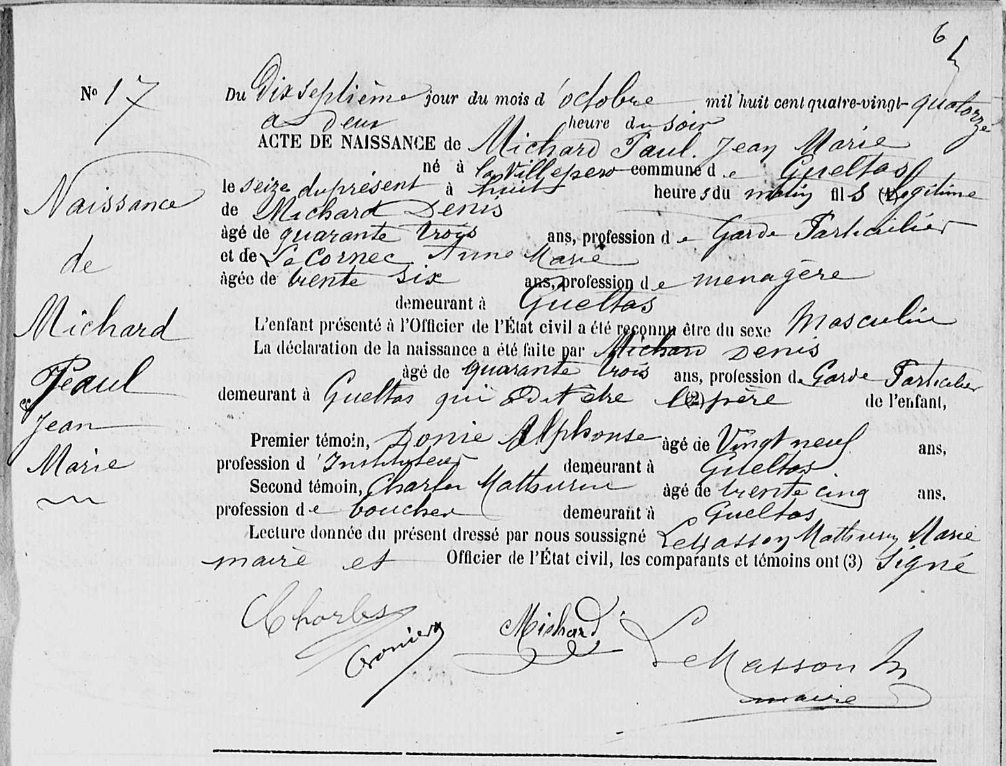 6
No 17
Du Dix septième jour du mois d'octobre mil huit cent quatre-vingt-quatorze
à Deux heure du soir
ACTE DE NAISSANCE de Michard Paul Jean Marie
né à la Villepero commune de Gueltas
le seize du présent à huit heures du matin fils légitime
de Michard Denis
âgé de quarante trois ans, profession de Garde Particulier
et de Le Cornec Anne Marie
âgée de trente six ans, profession de menagère
demeurant à Gueltas
L'enfant présenté à l'Officier de l'État civil a été reconnu être du sexe Masculin
La déclaration de la naissance a été faite par Michard Denis
âgé de quarante trois ans, profession de Garde Particulier
demeurant à Gueltas qui a dit être (2) le père de l'enfant,
Premier témoin, Alphonse âgé de Vingt neuf ans,
profession d'Instituteur demeurant à Gueltas
Second témoin, Charles Mathurin âgé de trente cinq ans,
profession de boucher demeurant à Gueltas
Lecture donnée du présent dressé par nous soussigné Le Masson Mathurin Marie
maire et Officier de l'État civil, les comparants et témoins ont (3) signé
Naissance
de
Michard
Paul
Jean
Marie
Charles
Michard
Le Masson M
maire